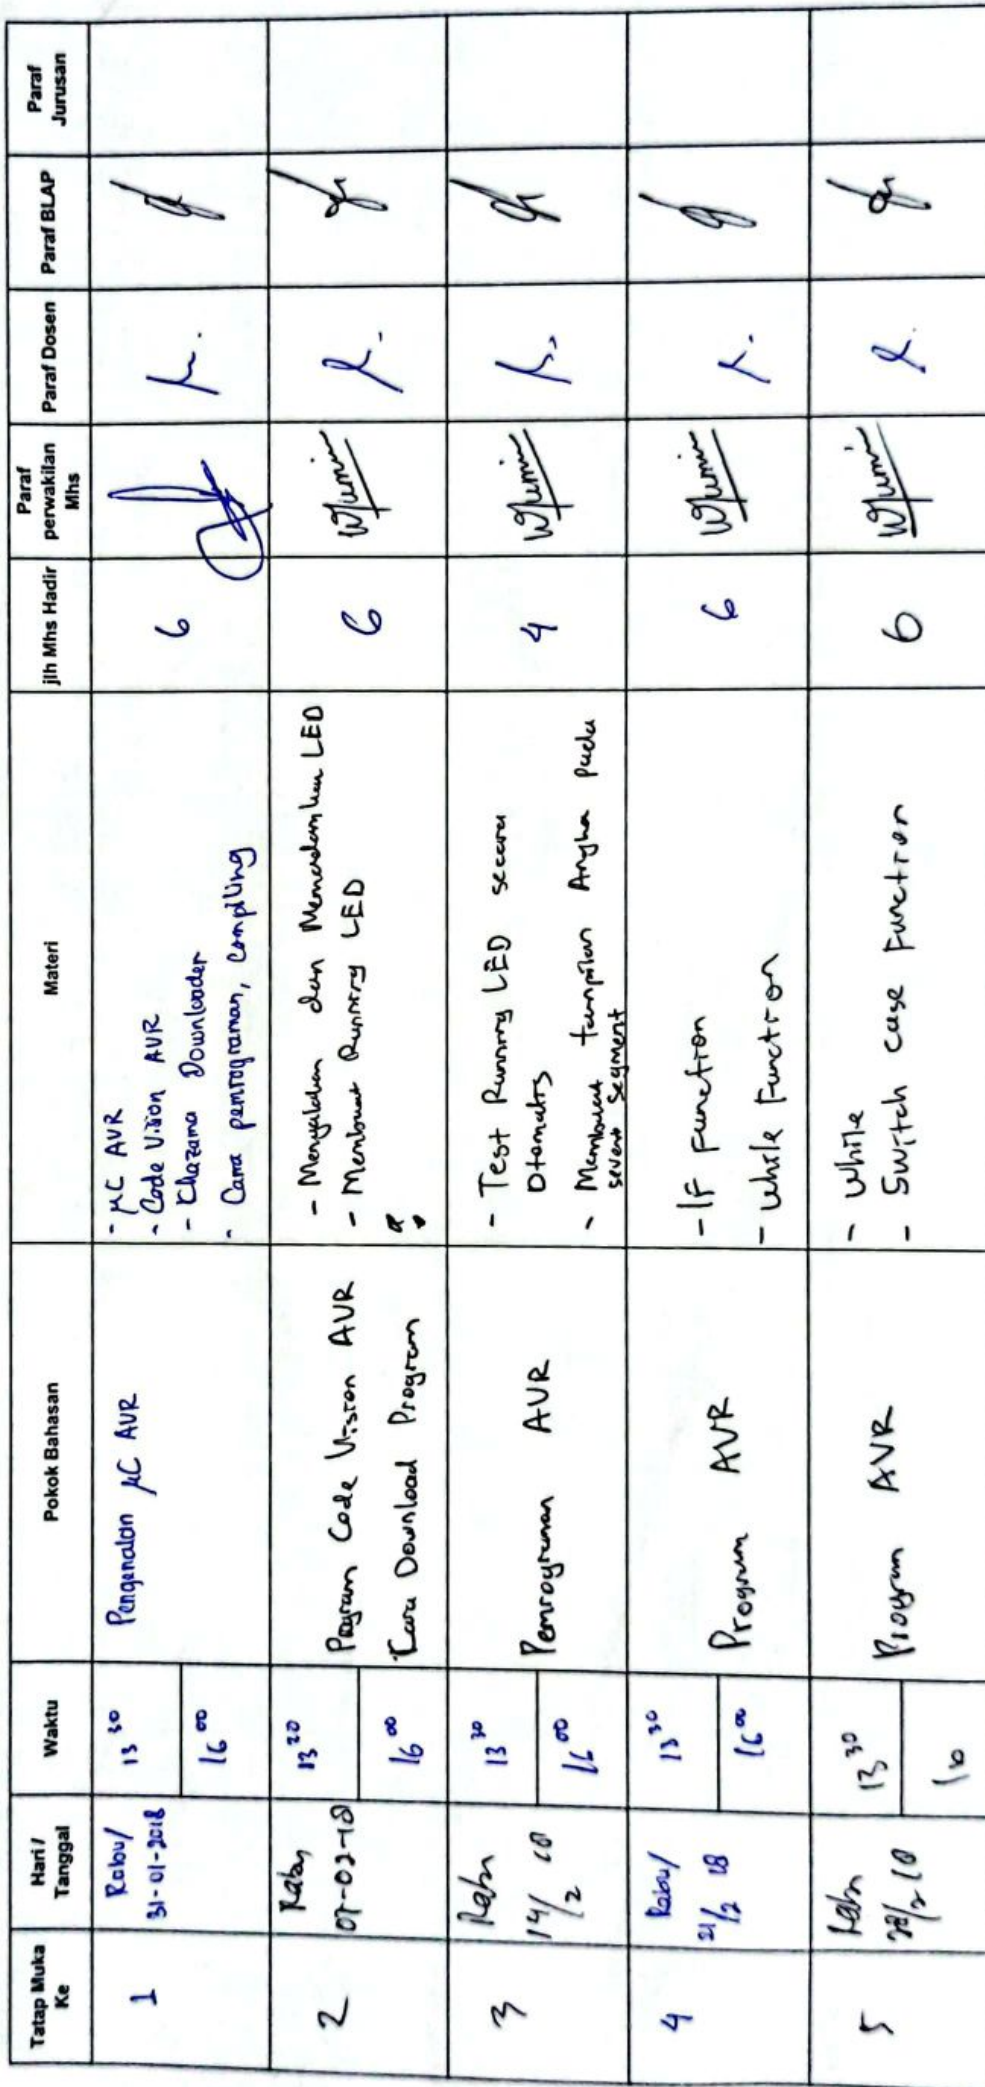 Tatap Muka
Ke
Hari /
Tanggal
Waktu
Pokok Bahasan
Materi
jlh Mhs Hadir
Paraf
perwakilan
Mhs
Paraf Dosen
Paraf BLAP
Paraf
Jurusan
1
Rabu/
31-01-2018
13 30
16 00
Pengenalan μC AVR
- μC AVR
- Code Vision AVR
- Khazama Downloader
- Cara pemrograman, compiling
6
2
Rabu
07-02-18
13 20
16 00
Program Code Vision AVR
Cara Download Program
- Menyalakan dan Memadamkan LED
- Membuat Running LED
6
3
Rabu
14/2 18
13 30
16 00
Pemrograman AVR
- Test Running LED secara
Otomatis
- Membuat tampilan Angka pada
seven segment
4
4
Rabu/
21/2 18
13 30
16 00
Program AVR
- IF Function
- While Function
6
5
Rabu
28/2 18
13 30
16
Program AVR
- While
- Switch case Function
6